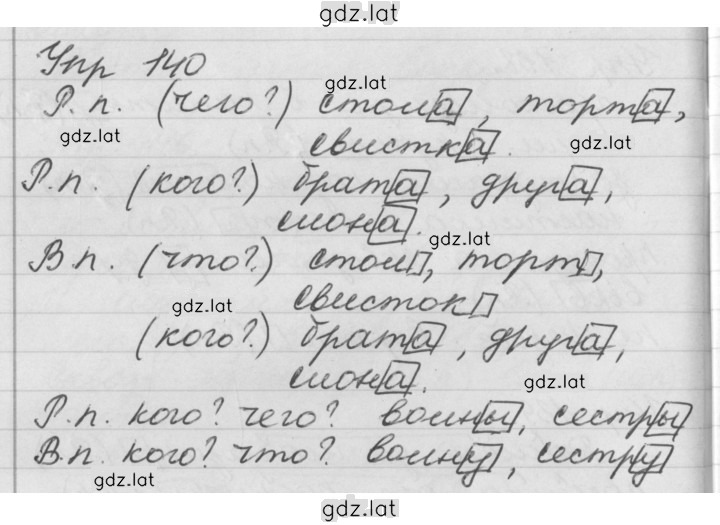 gdz.lat
Упр 140
gdz.lat
Р.п. (чего?) стола, торта,
gdz.lat
свистка. gdz.lat
Р.п. (кого?) брата, друга,
слона.
gdz.lat
В.п. (что?) стол, торт,
gdz.lat свисток
(кого?) брата, друга,
слона. gdz.lat
Р.п. кого? чего? волны, сестры
В.п. кого? что? волну, сестру
gdz.lat
gdz.lat